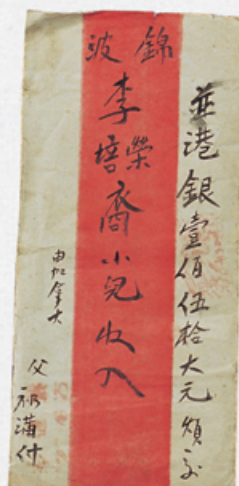 並港銀壹佰伍拾大元煩交
錦波
李榮培裔小兒收入
由加拿大
父
付